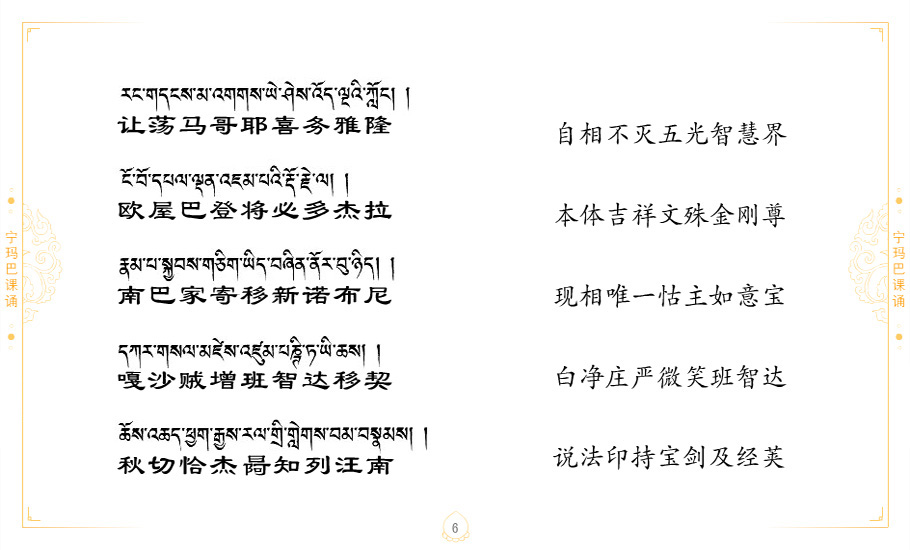 རང་གདངས་མ་འགགས་ཡེ་ཤེས་འོད་ལྔའི་ཀློང། །
让荡马哥耶喜务雅隆
自相不灭五光智慧界
ངོ་བོ་དཔལ་ལྡན་འཇམ་པའི་རྡོ་རྗེ་ལ། །
欧屋巴登将必多杰拉
本体吉祥文殊金刚尊
རྣམ་པ་སྐྱབས་གཅིག་ཡིད་བཞིན་ནོར་བུ་ཉིད། །
南巴家寄移新诺布尼
现相唯一怙主如意宝
དཀར་གསལ་མཛེས་འཛུམ་པཎྜི་ཏ་ཡི་ཆས། །
嘎沙贼增班智达移契
白净庄严微笑班智达
ཆོས་འཆད་ཕྱག་རྒྱས་རལ་གྲི་གླེགས་བམ་བསྣམས། །
秋切恰杰曷知列汪南
说法印持宝剑及经荚
宁玛巴课诵
宁玛巴课诵
6